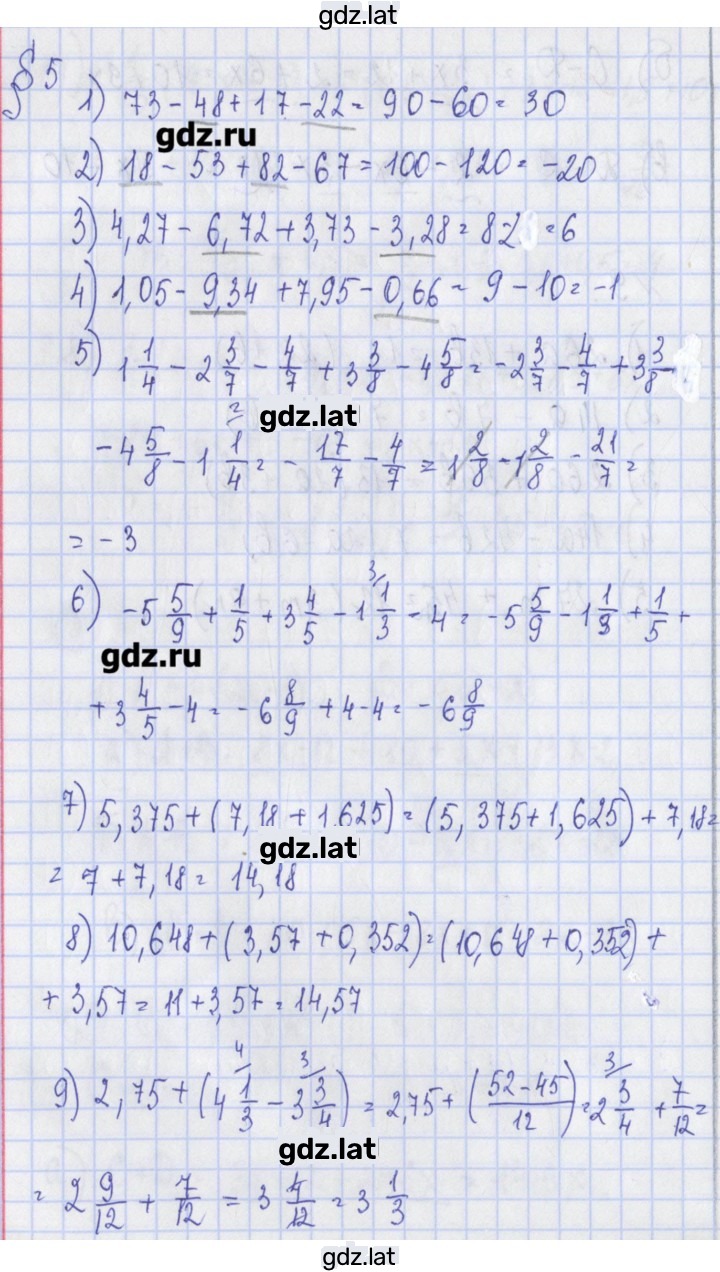 gdz.lat
§ 5
1) 73 - 48 + 17 - 22 = 90 - 60 = 30
gdz.ru
2) 18 - 53 + 82 - 67 = 100 - 120 = -20
3) 4,27 - 6,72 + 3,73 - 3,28 = 8 = 6
4) 1,05 - 9,34 + 7,95 - 0,66 = 9 - 10 = -1
5) 1 1/4 - 2 3/7 - 4/7 + 3 3/8 - 4 5/8 = -2 3/7 - 4/7 + 3 3/8
gdz.lat
- 4 5/8 - 1 1/4 = - 17/7 - 4/7 = 1 2/8 - 1 2/8 - 21/7 =
= -3
6) -5 5/9 + 1/5 + 3 4/5 - 1 1/3 - 4 = -5 5/9 - 1 1/3 + 1/5 +
gdz.ru
+ 3 4/5 - 4 = -6 8/9 + 4 - 4 = -6 8/9
7) 5,375 + (7,18 + 1.625) = (5,375 + 1,625) + 7,18 =
gdz.lat
= 7 + 7,18 = 14,18
8) 10,648 + (3,57 + 0,352) = (10,648 + 0,352) +
+ 3,57 = 11 + 3,57 = 14,57
9) 2,75 + (4 1/3 - 3 3/4) = 2,75 + (52-45/12) = 2 3/4 + 7/12 =
gdz.lat
= 2 9/12 + 7/12 = 3 4/12 = 3 1/3
gdz.lat